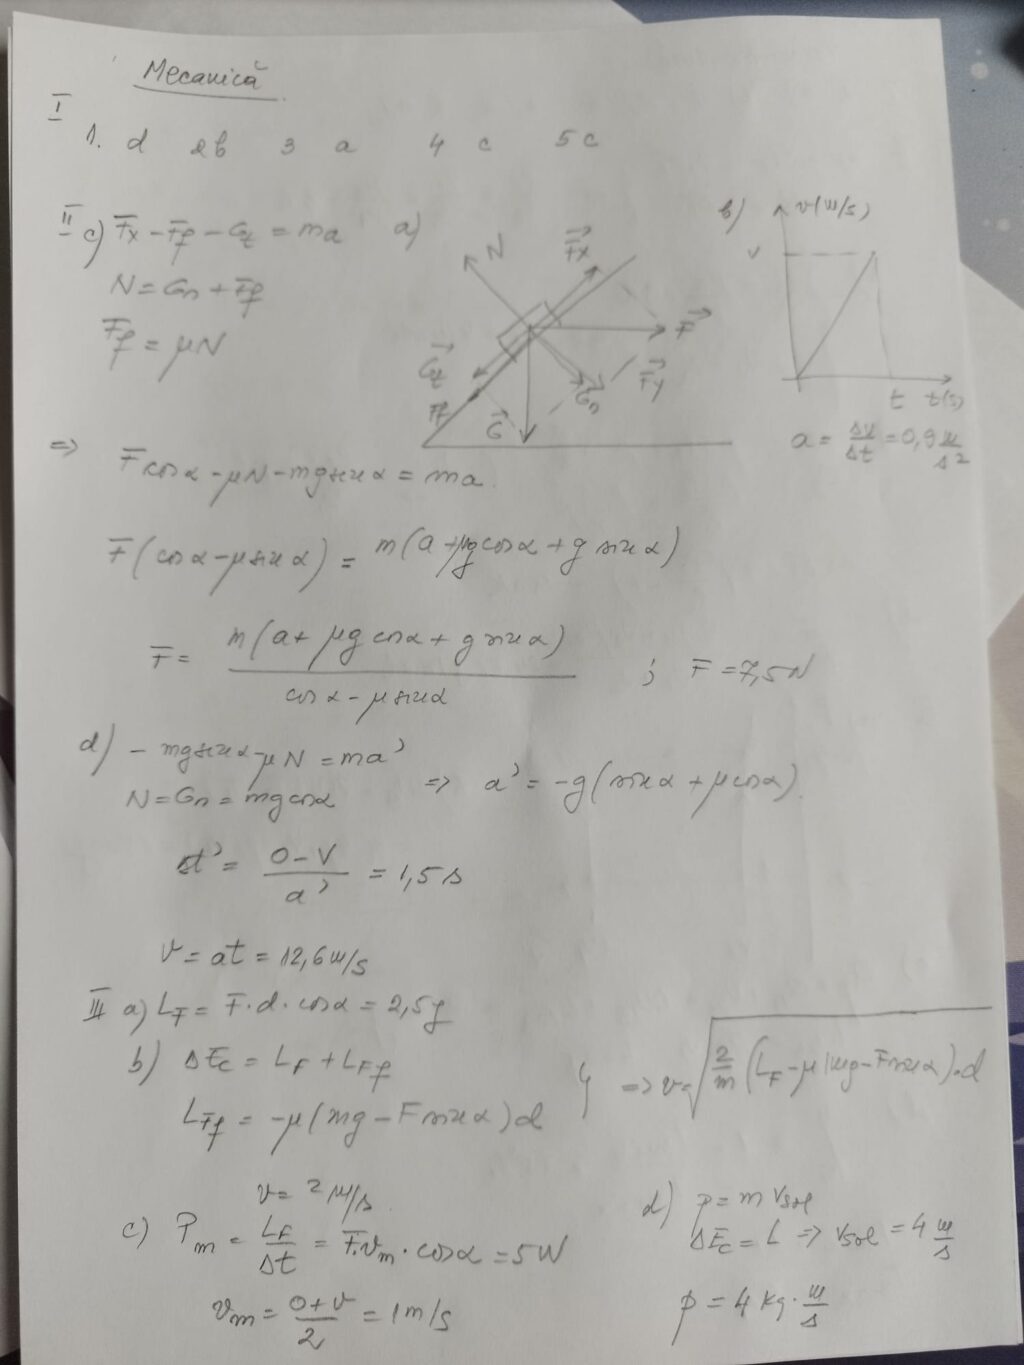 Mecanică
I
1. d 2b 3 a 4 c 5 c
II c) Fx - Ff - Gt = ma
N = Gn + Ff
Ff = μN
a)
N
Fx
F
Fy
Gn
Gt
Ff
G
b) v(m/s)
v
t t(s)
a = Δv/Δt = 0,9 m/s²
⇒ F cosα - μN - mg sinα = ma.
F(cosα - μ sinα) = m(a + μg cosα + g sinα)
F = m(a + μg cosα + g sinα)/(cosα - μ sinα) ; F = 7,5N
d) - mg sinα - μN = ma'
N = Gn = mg cosα ⇒ a' = -g(sinα + μ cosα)
Δt' = (0 - v)/a' = 1,5 s
v = at = 12,6 m/s
III a) LF = F·d·cosα = 2,5 J
b) ΔEc = LF + LFf
LFf = -μ(mg - F sinα)d
} ⇒ v = √(2/m (LF - μ(mg - F sinα)·d
v = 2 m/s
c) Pm = LF/Δt = F·vm·cosα = 5W
vm = (0+v)/2 = 1 m/s
d) p = m vsol
ΔEc = L ⇒ vsol = 4 m/s
p = 4 kg·m/s